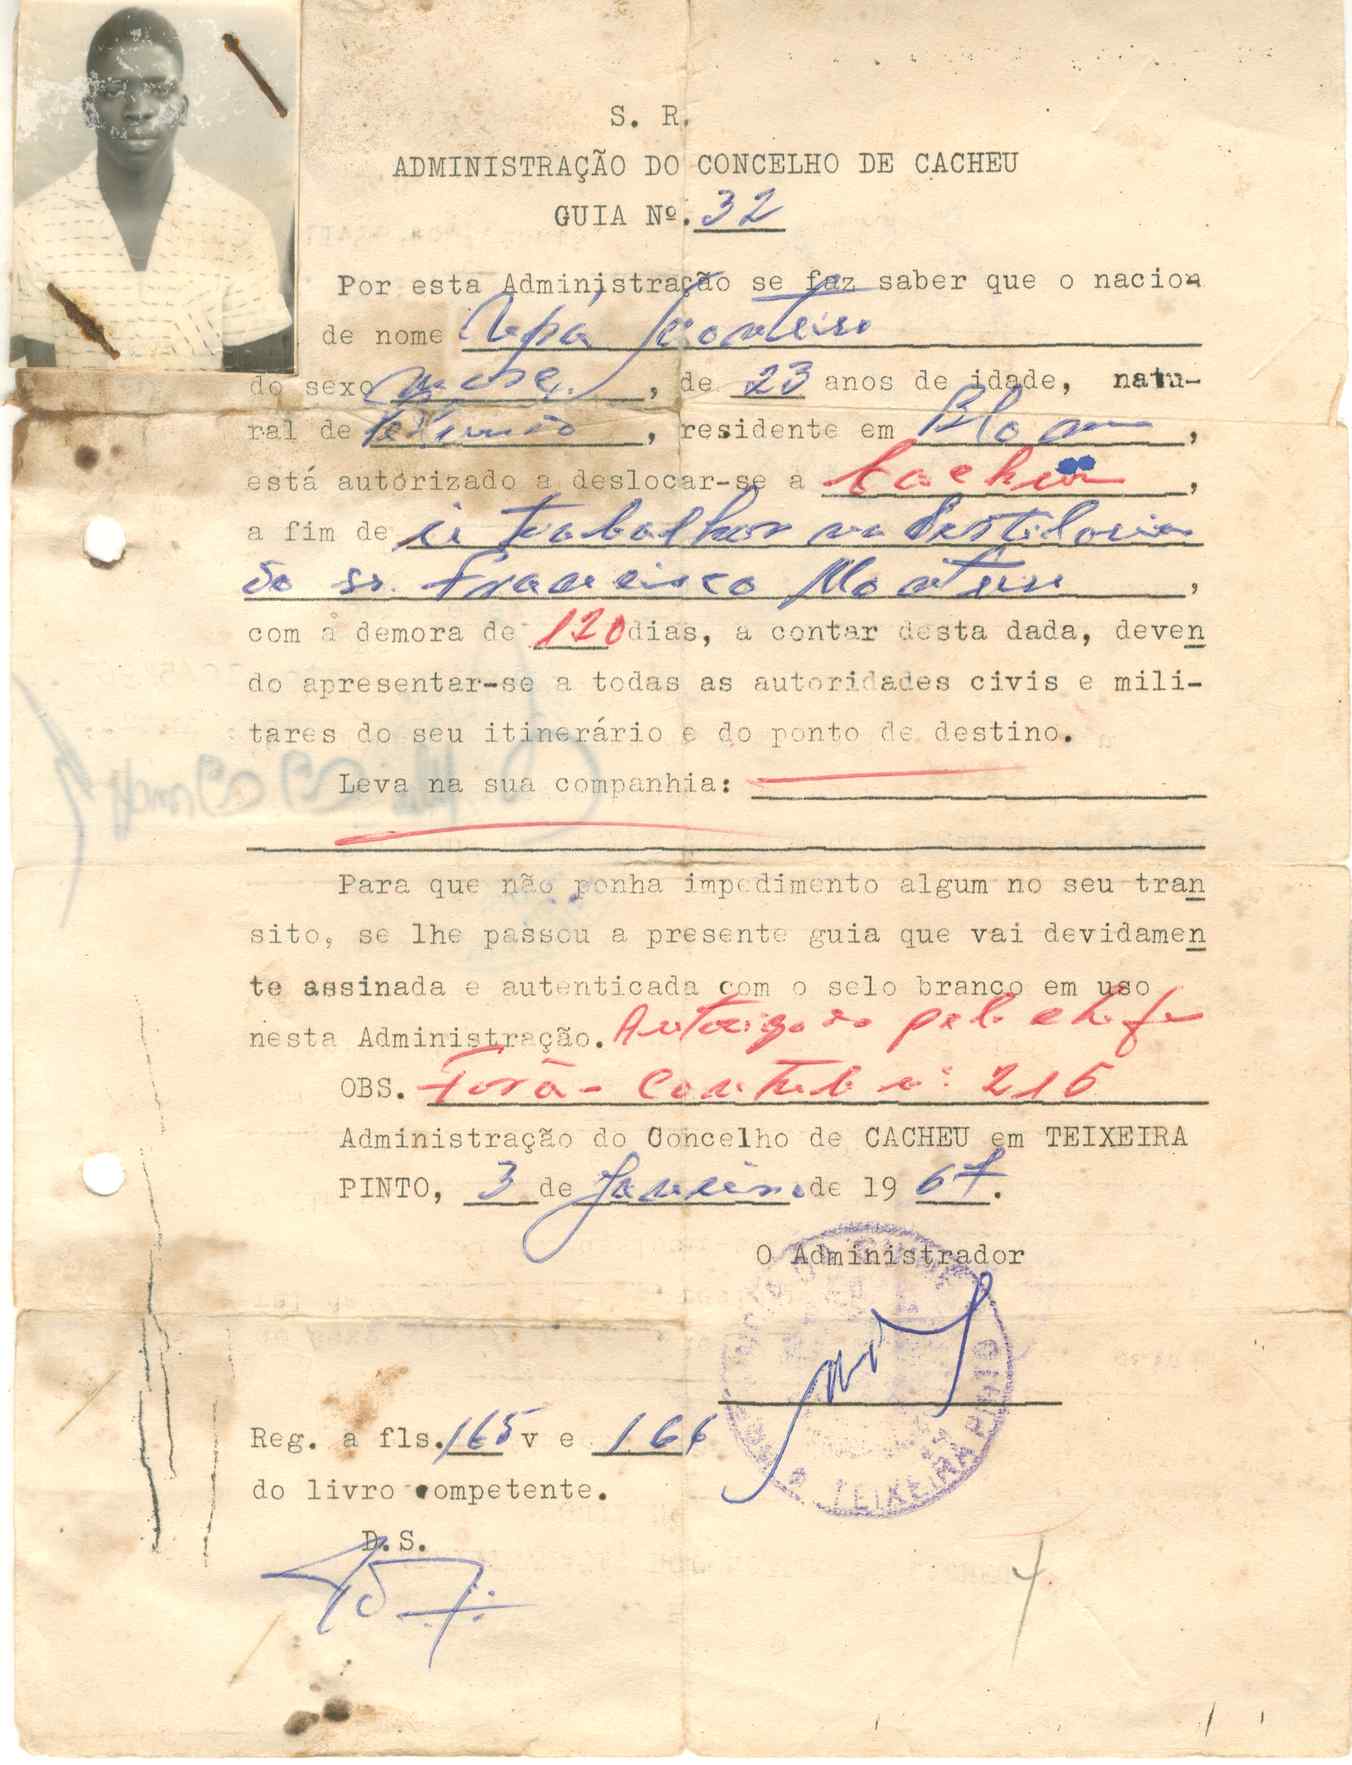 S. R.
ADMINISTRAÇÃO DO CONCELHO DE CACHEU
GUIA Nº. 32
Por esta Administração se faz saber que o nacion
de nome
do sexo masc. , de 23 anos de idade, natu-
ral de , residente em ,
está autorizado a deslocar-se a Cacheu ,
a fim de ir trabalhar na Destilaria
do sr. Francisco Monteiro ,
com a demora de 120 dias, a contar desta dada, deven
do apresentar-se a todas as autoridades civis e mili-
tares do seu itinerário e do ponto de destino.
Leva na sua companhia:
Para que não ponha impedimento algum no seu tran
sito, se lhe passou a presente guia que vai devidamen
te assinada e autenticada com o selo branco em uso
nesta Administração. Autorizado pelo chefe
OBS. nº 215
Administração do Concelho de CACHEU em TEIXEIRA
PINTO, 3 de Janeiro de 19 67.
O Administrador
TEIXEIRA PINTO
Reg. a fls. 165 v e 166
do livro competente.
D.S.